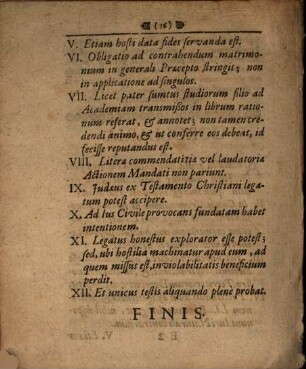 (16)
V. Etiam hosti data fides servanda est.
VI. Obligatio ad contrahendum matrimo-
nium in generali Præcepto stringit; non
in applicatione ad singulos.
VII. Licet pater sumtus studiorum filio ad
Academiam transmissos in librum ratio-
num referat, & annotet; non tamen cre-
dendi animo, & ut conferre eos debeat, id
fecisse reputandus est.
VIII. Literæ commendatitiæ vel laudatoriæ
Actionem Mandati non pariunt.
IX. Judæus ex Testamento Christiani lega-
tum potest accipere.
X. Ad Ius Civile provocans fundatam habet
intentionem.
XI. Legatus honestus explorator esse potest;
sed, ubi hostilia machinatur apud eum, ad
quem missus est, inviolabilitatis beneficium
perdit.
XII. Et unicus testis aliquando plenè probat.
FINIS.